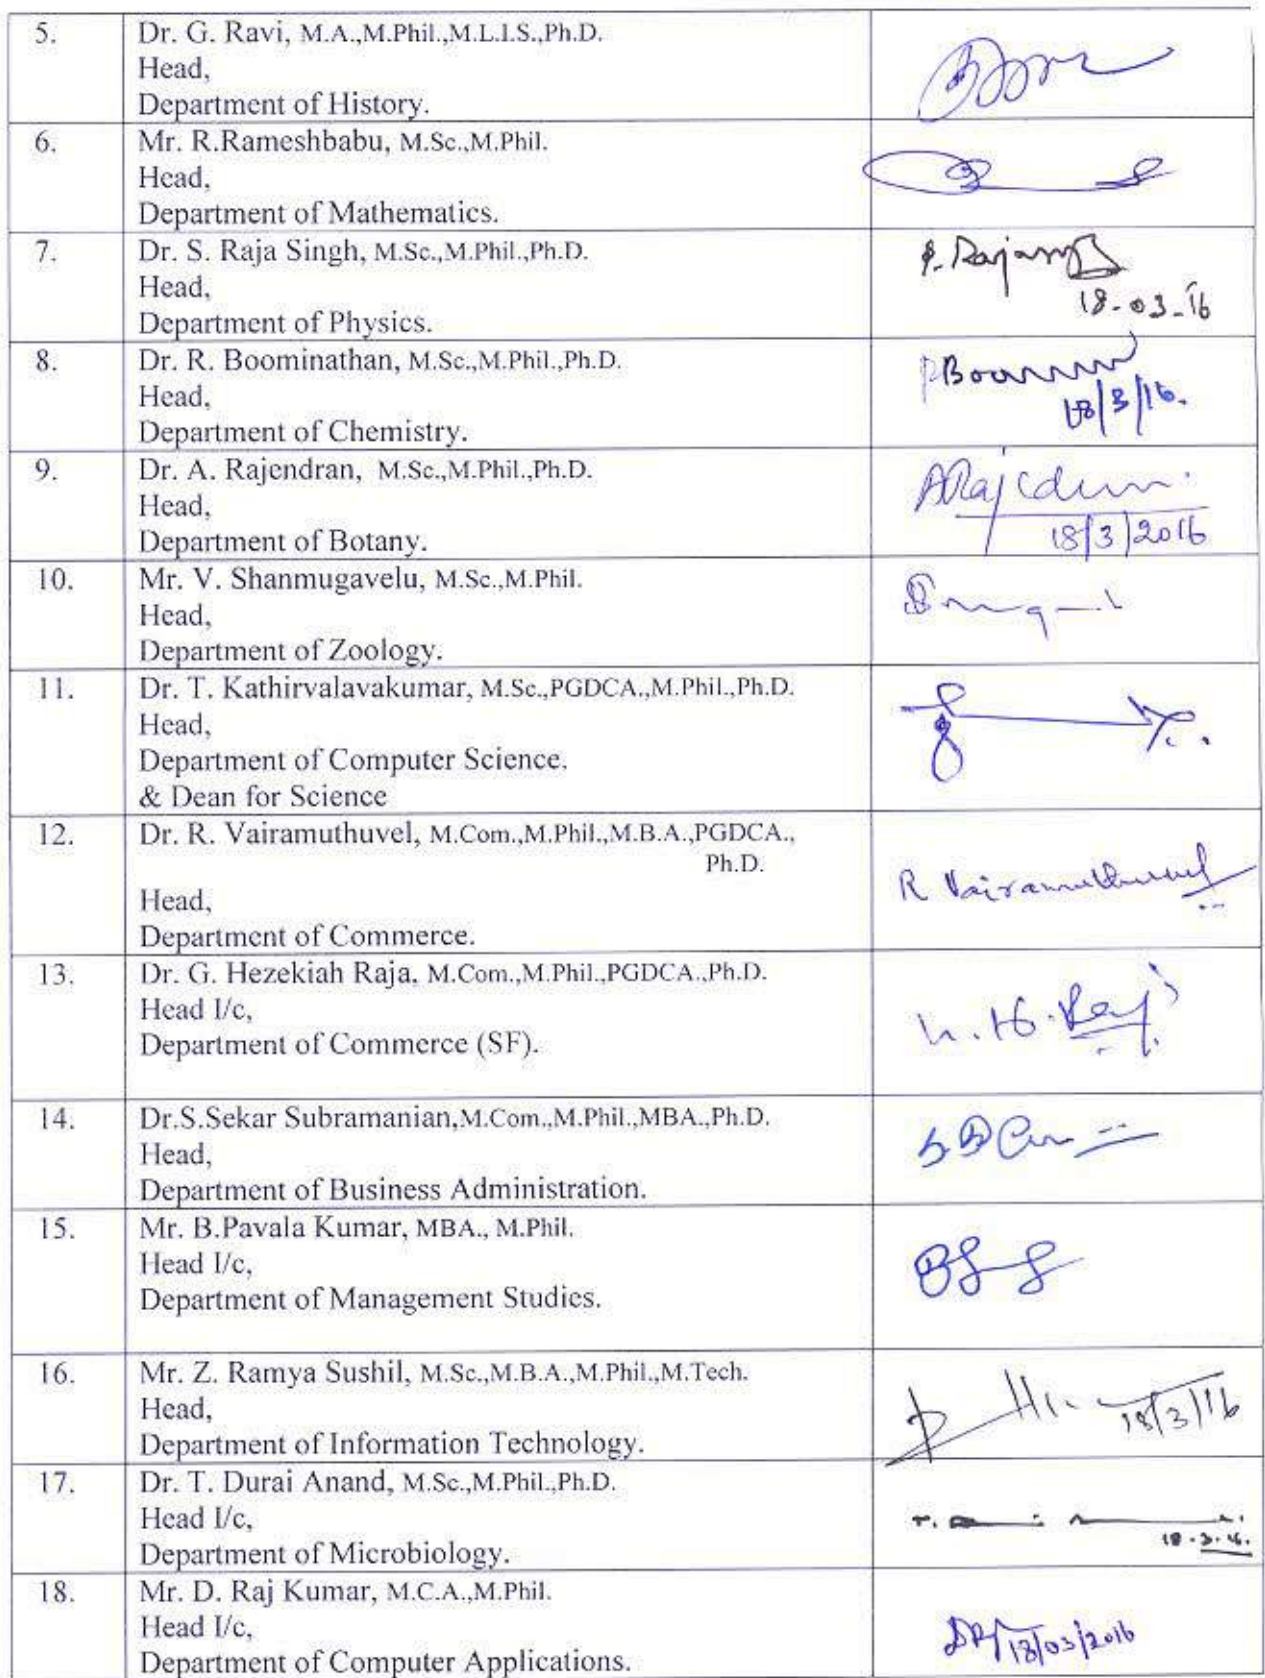 5. Dr. G. Ravi, M.A.,M.Phil.,M.L.I.S.,Ph.D.
Head,
Department of History.
6. Mr. R.Rameshbabu, M.Sc.,M.Phil.
Head,
Department of Mathematics.
7. Dr. S. Raja Singh, M.Sc.,M.Phil.,Ph.D.
Head,
Department of Physics.
18-03-16
8. Dr. R. Boominathan, M.Sc.,M.Phil.,Ph.D.
Head,
Department of Chemistry.
18/3/16.
9. Dr. A. Rajendran, M.Sc.,M.Phil.,Ph.D.
Head,
Department of Botany.
18/3/2016
10. Mr. V. Shanmugavelu, M.Sc.,M.Phil.
Head,
Department of Zoology.
11. Dr. T. Kathirvalavakumar, M.Sc.,PGDCA.,M.Phil.,Ph.D.
Head,
Department of Computer Science.
& Dean for Science
12. Dr. R. Vairamuthuvel, M.Com.,M.Phil.,M.B.A.,PGDCA.,
Ph.D.
R Vairamuthuvel
Head,
Department of Commerce.
13. Dr. G. Hezekiah Raja, M.Com.,M.Phil.,PGDCA.,Ph.D.
Head I/c,
Department of Commerce (SF).
14. Dr.S.Sekar Subramanian,M.Com.,M.Phil.,MBA.,Ph.D.
Head,
Department of Business Administration.
15. Mr. B.Pavala Kumar, MBA., M.Phil.
Head I/c,
Department of Management Studies.
16. Mr. Z. Ramya Sushil, M.Sc.,M.B.A.,M.Phil.,M.Tech.
Head,
Department of Information Technology.
18/3/16
17. Dr. T. Durai Anand, M.Sc.,M.Phil.,Ph.D.
Head I/c,
Department of Microbiology.
18-3-16.
18. Mr. D. Raj Kumar, M.C.A.,M.Phil.
Head I/c,
Department of Computer Applications.
18/03/2016